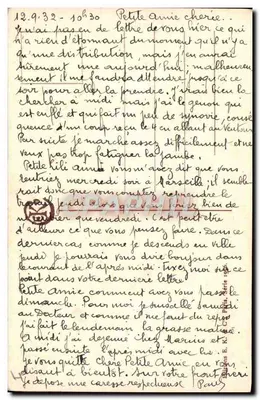 12.9.32 - 10h30 Petite Amie chérie..
Je n'ai pas eu de lettre de vous hier ce qui
n'a rien d'étonnant du moment qu'il n'y a
qu'une distribution, mais j'en aurai
sûrement une aujourd'hui; malheureu
sement il me faudra attendre jusqu'à ce
soir pour aller la prendre. J'irais bien la
chercher à midi mais j'ai le genou qui
est enflé et qui fait un peu de synovie, consé
quence d'un coup reçu le en allant au Ventoux
Par suite je marche assez difficilement et ne
veux pas trop fatiguer la jambe.
Petite Lili Amie vous m'avez dit que vous
rentriez mercredi soir à Marseille; il semble
rait donc que vous comptez reprendre le
jeudi hier bien de
que vendredi. C'est peut être
d'ailleurs ce que vous pensez faire. Dans ce
dernier cas comme je descends en ville
jeudi je pourrais vous dire bonjour dans
le courant de l'après midi. Fixez moi sur ce
point dans votre dernière lettre!
Petite amie comment avez vous passé
dimanche. Pour moi je suis allé samedi
au Docteur et comme il ne faut du repos
j'ai fait le lendemain la grasse matinée
A midi j'ai déjeuné chez Marius et
passé ensuite l'après midi avec lui.
Je vous quitte Chère Petite Amie en vous
disant à bientôt. Sur votre front chéri
je dépose une caresse respectueuse Paul